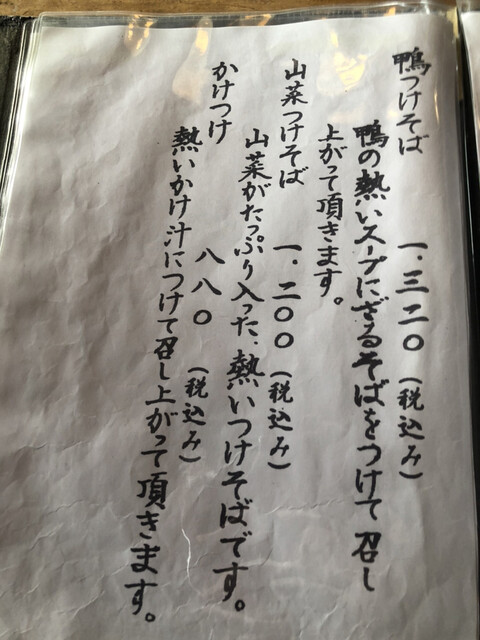 鴨つけそば 一.三二〇(税込み)
鴨の熱いスープにざるそばをつけて召し
上がって頂きます。
山菜つけそば 一.二〇〇(税込み)
山菜がたっぷり入った、熱いつけそばです。
かけつけ 八八〇(税込み)
熱いかけ汁につけて召し上がって頂きます。